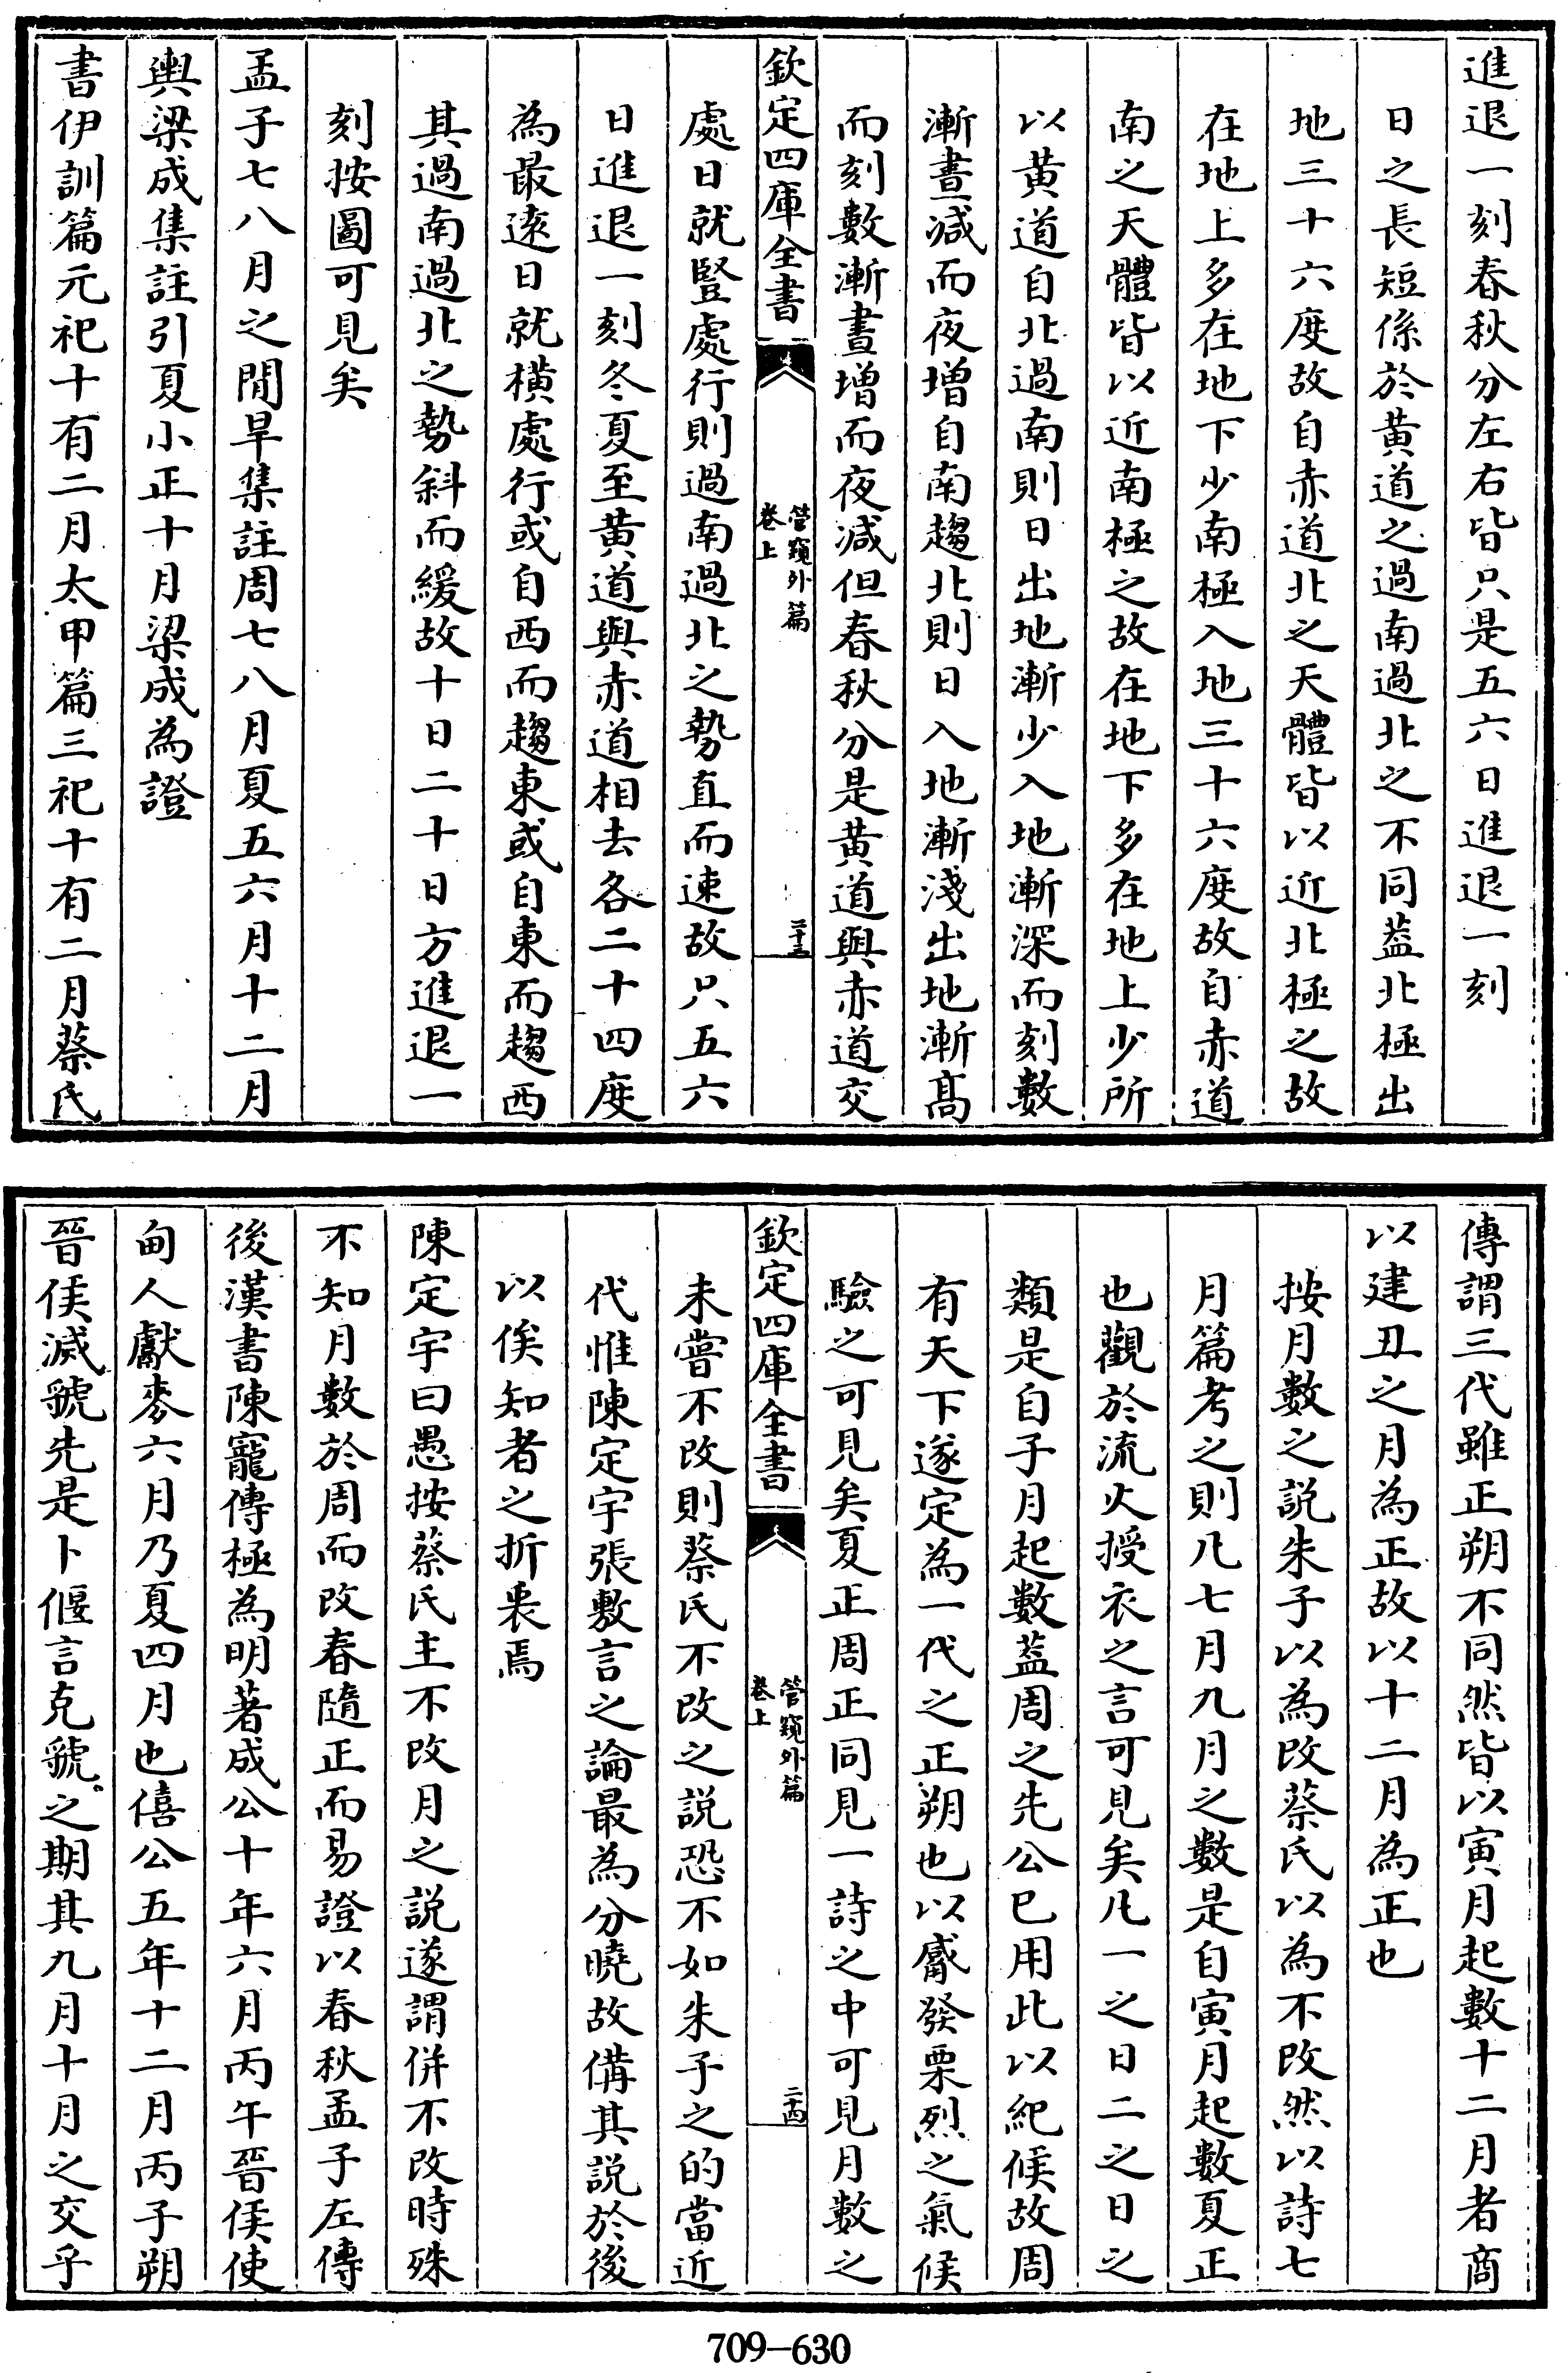 進退一刻春秋分左右皆只是五六日進退一刻
日之長短係於黄道之過南過北之不同葢北極出
地三十六度故自赤道北之天體皆以近北極之故
在地上多在地下少南極入地三十六度故自赤道
南之天體皆以近南極之故在地下多在地上少所
以黄道自北過南則日出地漸少入地漸深而刻數
漸晝減而夜增自南趨北則日入地漸淺出地漸髙
而刻數漸晝增而夜減但春秋分是黄道與赤道交
欽定四庫全書
管窺外篇
卷上
二十三
處日就豎處行則過南過北之勢直而速故只五六
日進退一刻冬夏至黄道與赤道相去各二十四度
為最遠日就横處行或自西而趨東或自東而趨西
其過南過北之勢斜而緩故十日二十日方進退一
刻按圖可見矣
孟子七八月之間旱集註周七八月夏五六月十二月
輿梁成集註引夏小正十月梁成為證
書伊訓篇元祀十有二月太甲篇三祀十有二月蔡氏
傳謂三代雖正朔不同然皆以寅月起數十二月者商
以建丑之月為正故以十二月為正也
按月數之説朱子以為改蔡氏以為不改然以詩七
月篇考之則凡七月九月之數是自寅月起數夏正
也觀於流火授衣之言可見矣凡一之日二之日之
類是自子月起數葢周之先公已用此以紀候故周
有天下遂定為一代之正朔也以觱發栗烈之氣候
驗之可見矣夏正周正同見一詩之中可見月數之
欽定四庫全書
管窺外篇
卷上
二十四
未嘗不改則蔡氏不改之説恐不如朱子之的當近
代惟陳定宇張敷言之論最為分曉故備其説於後
以俟知者之折衷焉
陳定宇曰愚按蔡氏主不改月之説遂謂併不改時殊
不知月數於周而改春隨正而易證以春秋孟子左傳
後漢書陳寵傳極為明著成公十年六月丙午晉侯使
甸人獻麥六月乃夏四月也僖公五年十二月丙子朔
晉侯滅虢先是卜偃言克虢之期其九月十月之交乎
709-630